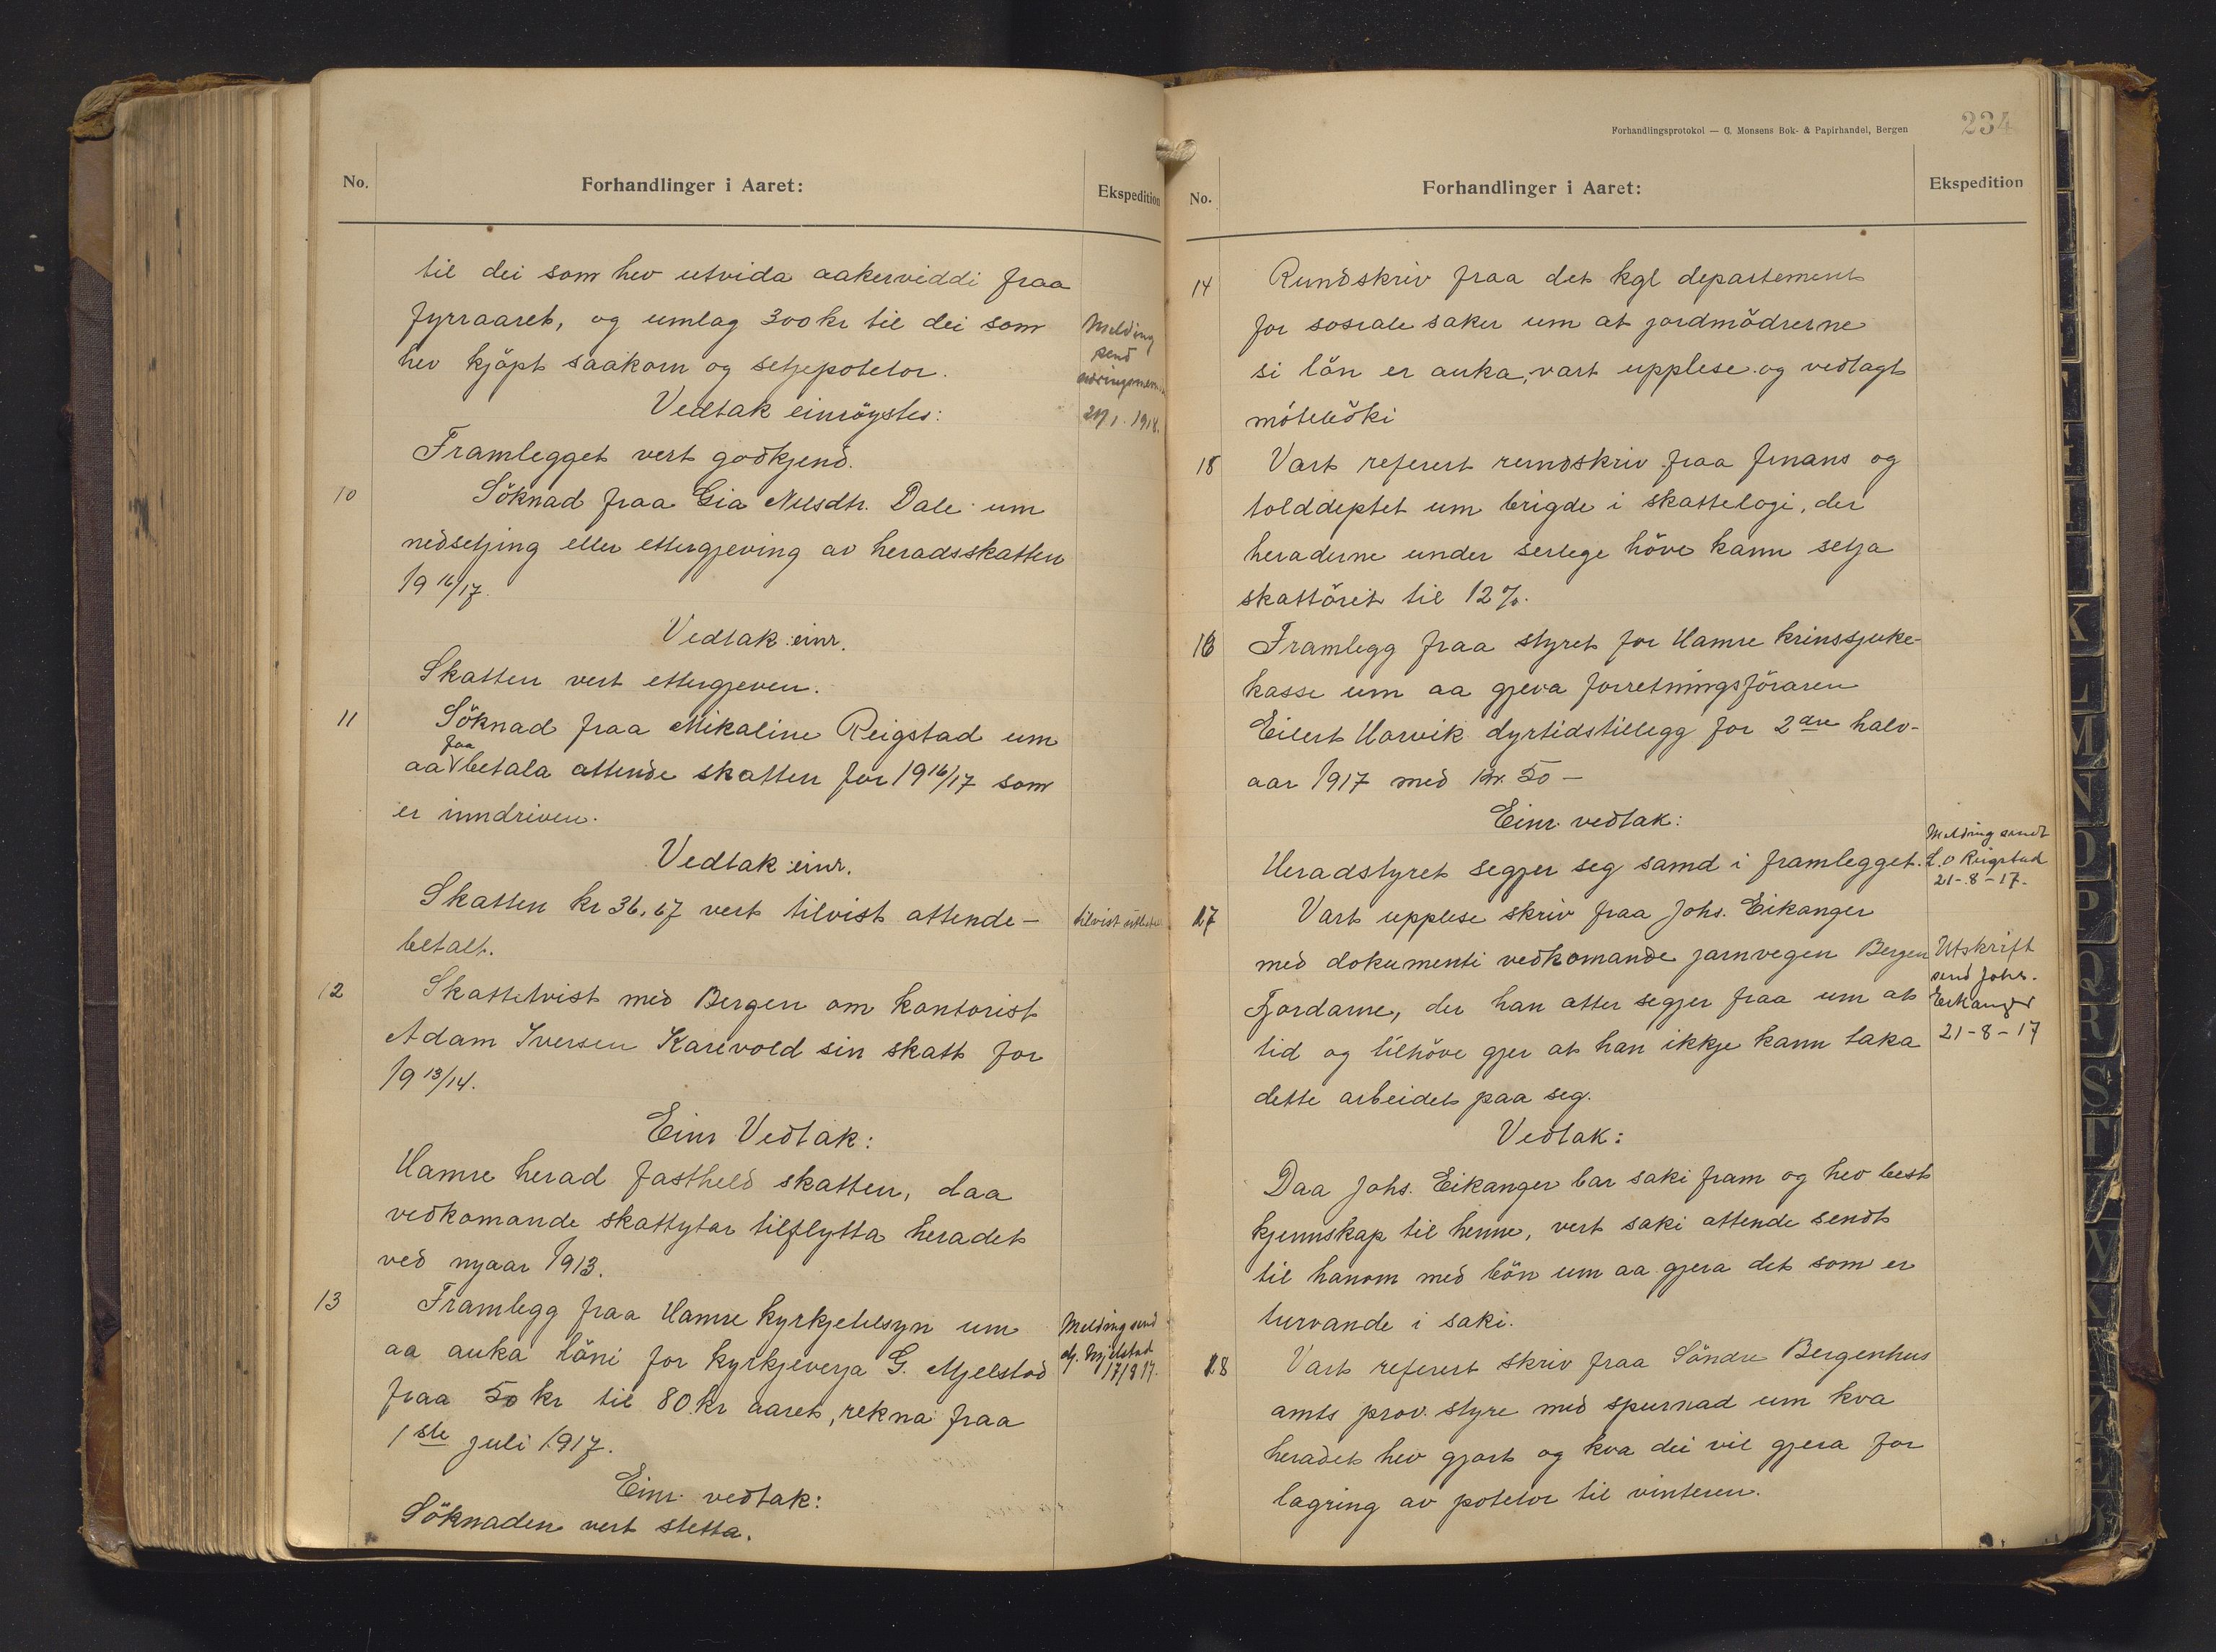 No.
Forhandlinger i Aaret:
Ekspedition
til dei som hev utvida aakerviddi fraa
fyrraaret, og umlag 300 kr til dei som
hev kjöpt saakorn og setjepotetor.
Melding
send
21/1. 1918.
Vedtak einröystes:
Framlegget vert godkjend.
10
Söknad fraa Gia Nilsdtr. Dale um
nedsetjing eller ettergjeving av heradsskatten
19 16/17.
Vedtak: einr.
Skatten vert ettergjeven.
11
Söknad fraa Mikaline Reigstad um
aa faa betala attende skatten for 1916/17 som
er inndriven.
Vedtak: einr.
Skatten kr 36,67 vert tilvist attende-
betalt.
tilvist
12
Skattetvist med Bergen om kontorist
Adam Iversen Karevold sin skatt for
19 13/14.
Einr Vedtak:
Hamre herad fastheld skatten, daa
vedkomande skattytar tilflytta heradet
ved nyaar 1913.
13
Framlegg fraa Hamre kyrkjetilsyn um
aa auka löni for kyrkjeverja G. Mjelstad
fraa 50 kr til 80 kr aaret, rekna fraa
1ste juli 1917.
Melding send
G. Mjelstad
17/8 17.
Einr. vedtak:
Söknaden vert stetta.
Forhandlingsprotokol — C. Monsens Bok- & Papirhandel, Bergen
234
No.
Forhandlinger i Aaret:
Ekspedition
14
Rundskriv fraa det kgl departement
for sosiale saker um at jordmödrerne
si lön er auka, vart upplese og vedlagt
möteböki
15
Vart referert rundskriv fraa finans og
tolddeptet um brigde i skattelogi, der
heraderne under serlege höve kann setja
skattöret til 12%.
16
Framlegg fraa styret for Hamre krinssjuke-
kasse um aa gjeva forretningsföraren
Eilert Horvik dyrtidstillegg for 2dre halv-
aar 1917 med kr. 50 —
Einr. vedtak:
Heradstyret segjer seg samd i framlegget.
Melding sendt
L. O Reigstad
21-8-17.
17
Vart upplese skriv fraa Johs. Eikanger
med dokumenti vedkomande jarnvegen Bergen
Fjordarne, der han atter segjer fraa um at
tid og tilhöve gjer at han ikkje kann taka
dette arbeidet paa seg.
Utskrift
send Johs.
Eikanger
21-8-17
Vedtak:
Daa Johs. Eikanger bar saki fram og hev best
kjennskap til henne, vert saki attende sendt
til hanom med bön um aa gjera det som er
turvande i saki.
18
Vart referert skriv fraa Söndre Bergenhus
amts prov. styre med spurnad um kva
heradet hev gjort og kva dei vil gjera for
lagring av potetor til vinteren.